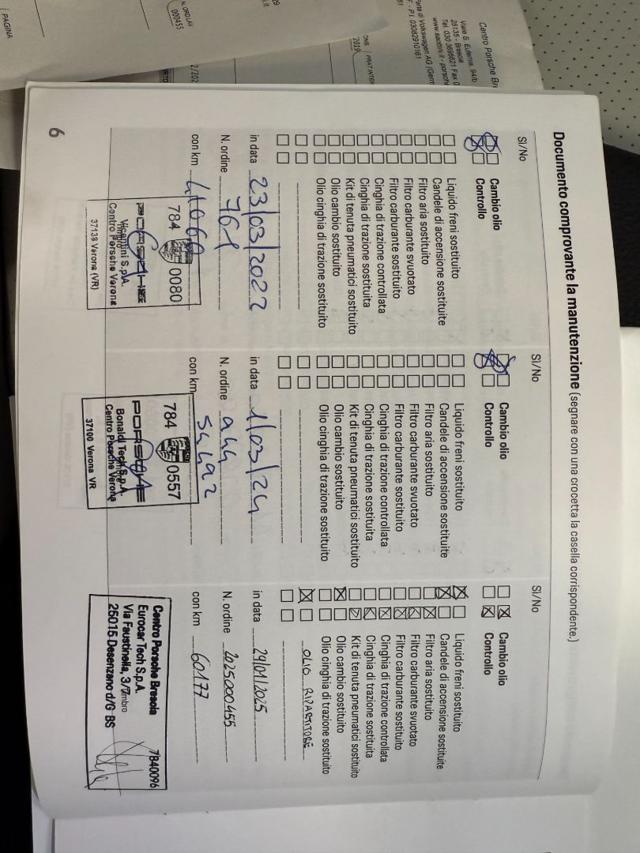 Documento comprovante la manutenzione (segnare con una crocetta la casella corrispondente.)
Sì/No
Cambio olio
Controllo
Liquido freni sostituito
Candele di accensione sostituite
Filtro aria sostituito
Filtro carburante svuotato
Filtro carburante sostituito
Cinghia di trazione controllata
Cinghia di trazione sostituita
Kit di tenuta pneumatici sostituito
Olio cambio sostituito
Olio cinghia di trazione sostituito
in data 23/03/2022
N. ordine 761
con km
784 0080
PORSCHE
Centro Porsche Verona
37139 Verona (VR)
Sì/No
Cambio olio
Controllo
Liquido freni sostituito
Candele di accensione sostituite
Filtro aria sostituito
Filtro carburante svuotato
Filtro carburante sostituito
Cinghia di trazione controllata
Cinghia di trazione sostituita
Kit di tenuta pneumatici sostituito
Olio cambio sostituito
Olio cinghia di trazione sostituito
in data 1/03/24
N. ordine 944
con km 54492
784 0557
PORSCHE
Bonaldi Tech S.p.A.
Centro Porsche Verona
37100 Verona VR
Sì/No
Cambio olio
Controllo
Liquido freni sostituito
Candele di accensione sostituite
Filtro aria sostituito
Filtro carburante svuotato
Filtro carburante sostituito
Cinghia di trazione controllata
Cinghia di trazione sostituita
Kit di tenuta pneumatici sostituito
Olio cambio sostituito
Olio cinghia di trazione sostituito
OLIO RIPARTITORE
in data 29/01/2025
N. ordine 2025000455
con km 60177
Centro Porsche Brescia 7840096
Eurocar Tech S.p.A.
Via Faustinella, 3/7
25015 Desenzano d/G BS
6